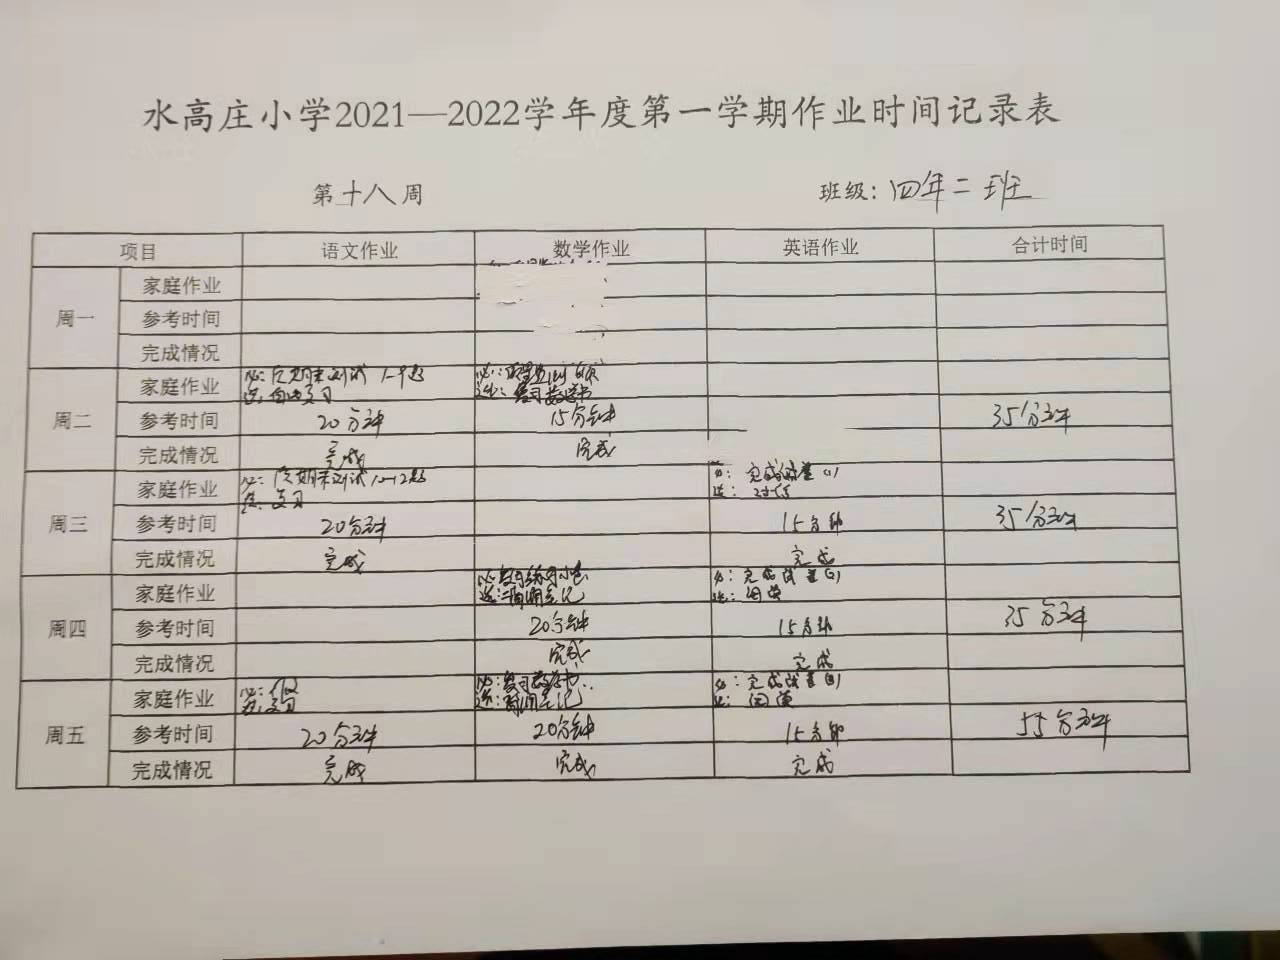 水高庄小学2021—2022学年度第一学期作业时间记录表
第十八周 班级：四年二班
项目 语文作业 数学作业 英语作业 合计时间
周一 家庭作业
参考时间
完成情况
周二 家庭作业 必：期末测试 必：
选：自由复习 选：复习数学书
参考时间 20分钟 15分钟 35分钟
完成情况 完成 完成
周三 家庭作业 必：期末测试10-12题 必：完成
选：复习 选：对话
参考时间 20分钟 15分钟 35分钟
完成情况 完成 完成
周四 家庭作业 必：复习练习小卷 必：完成试卷(2)
选： 选：阅读
参考时间 20分钟 15分钟 35分钟
完成情况 完成 完成
周五 家庭作业 必： 必：复习数学书 必：完成试卷
选：复习 选： 选：阅读
参考时间 20分钟 20分钟 15分钟 55分钟
完成情况 完成 完成 完成